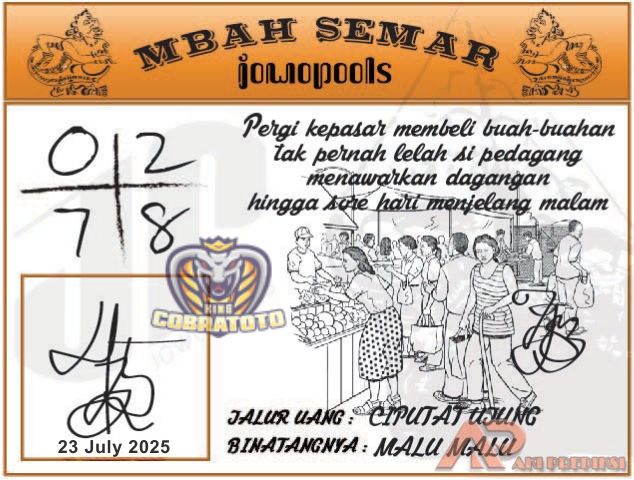 MBAH SEMAR
jowopools
0 2
7 8
Pergi kepasar membeli buah-buahan
tak pernah lelah si pedagang
menawarkan dagangan
hingga sore hari menjelang malam
KING
COBRATOTO
23 July 2025
JALUR UANG : CIPUTAT UJUNG
BINATANGNYA : MALU MALU
AP
API PREDIKSI